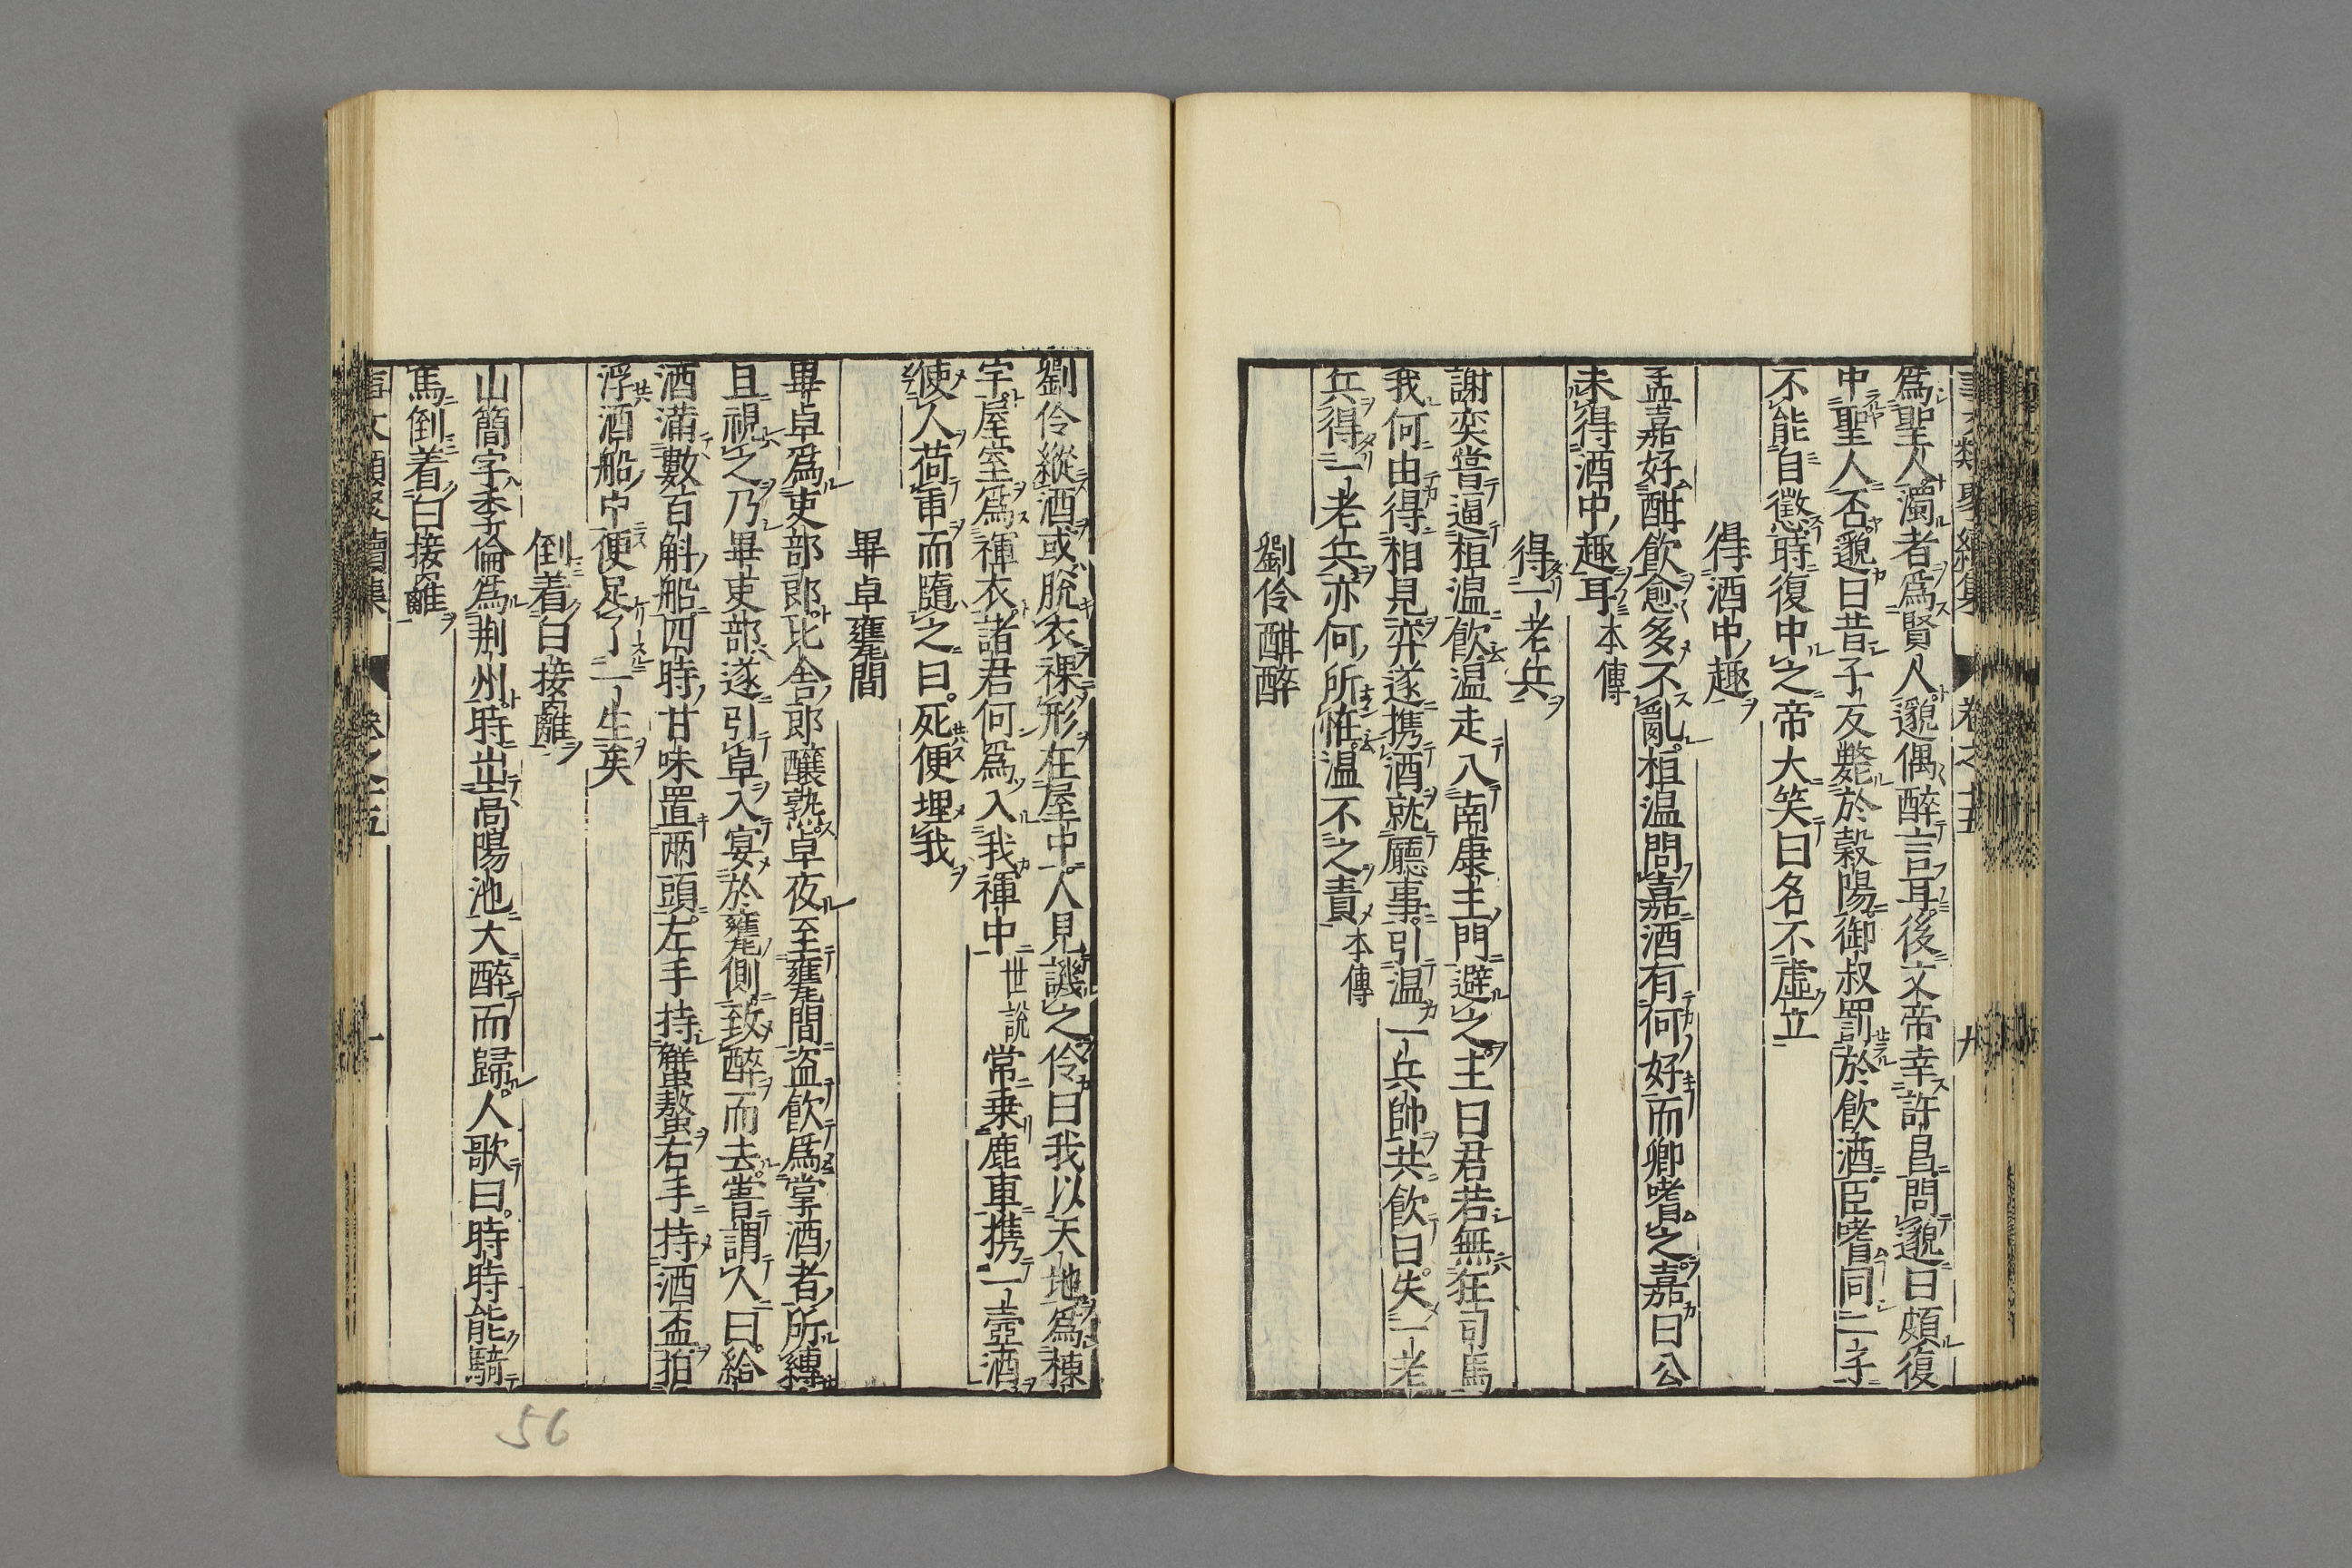 爲聖人濁者爲賢人邈偶醉言耳後文帝幸許昌問邈曰頗復
中聖人否邈曰昔子反斃於穀陽御叔罰於飲酒臣嗜同二子
不能自懲時復中之帝大笑曰名不虛立
得酒中趣
孟嘉好酣飲愈多不亂桓温問嘉酒有何好而卿嗜之嘉曰公
未得酒中趣耳本傳
得一老兵
謝奕嘗逼桓温飲温走入南康主門避之主曰君若無狂司馬
我何由得相見弈遂携酒就廳事引温一兵帥共飲曰失一老
兵得一老兵亦何所恠温不之責本傳
劉伶酣醉
劉伶縱酒或脫衣裸形在屋中人見譏之伶曰我以天地爲棟
宇屋室爲褌衣諸君何爲入我褌中世說常乗鹿車携一壺酒
使人荷臿而隨之曰死便埋我
畢卓甕間
畢卓爲吏部郎比舍郎釀熟卓夜至甕間盗飲爲掌酒者所縛
旦視之乃畢吏部遂引卓入宴於甕側致醉而去嘗謂人曰給
酒滿數百斛船四時甘味置兩頭左手持蟹螯右手持酒盃拍
浮酒船中便足了一生矣
倒着白接䍦
山簡字季倫爲荆州時出高陽池大醉而歸人歌曰時時能騎
馬倒着白接䍦